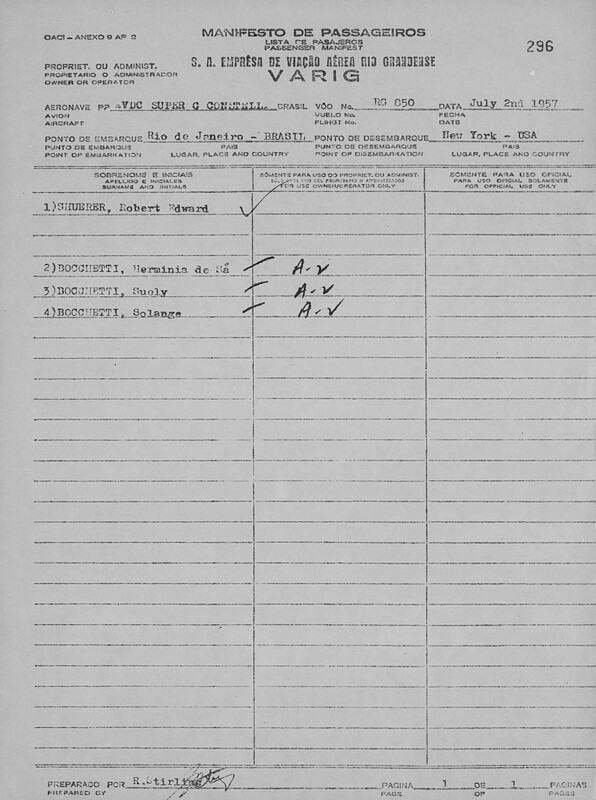 OACI - ANEXO 9 AP 2
MANIFESTO DE PASSAGEIROS
LISTA DE PASAJEROS
PASSENGER MANIFEST
296
PROPRIET. OU ADMINIST.
PROPIETARIO O ADMINISTRADOR
OWNER OR OPERATOR
S. A. EMPRÊSA DE VIAÇÃO AÉREA RIO GRANDENSE
VARIG
AERONAVE PP -VDC SUPER G CONSTELL. BRASIL VÔO No. RG 850 DATA July 2nd 1957
AVION VUELO No. FECHA
AIRCRAFT FLIHGT No. DATE
PONTO DE EMBARQUE Rio de Janeiro - BRASIL PONTO DE DESEMBARQUE New York - USA
PUNTO DE EMBARQUE PAIS PUNTO DE DESEMBARQUE PAIS
POINT OF EMBARKATION LUGAR, PLACE AND COUNTRY POINT OF DISEMBARKATION LUGAR, PLACE AND COUNTRY
SOBRENOME E INICIAIS SÒMENTE PARA USO DO PROPRIET. OU ADMINIST. SÒMENTE PARA USO OFICIAL
APELLIDO E INICIALES PARA USO OFICIAL SOLAMENTE
SURNAME AND INITIALS FOR USE OWNER/OPERATOR ONLY FOR OFFICIAL USE ONLY
1)SHUERER, Robert Edward
2)BOCCHETTI, Herminia de Sá A-v
3)BOCCHETTI, Suely A-v
4)BOCCHETTI, Solange A-v
PREPARADO POR R.Stirling PAGINA 1 DE 1 PAGINAS
PREPARED BY PAGE OF PAGES